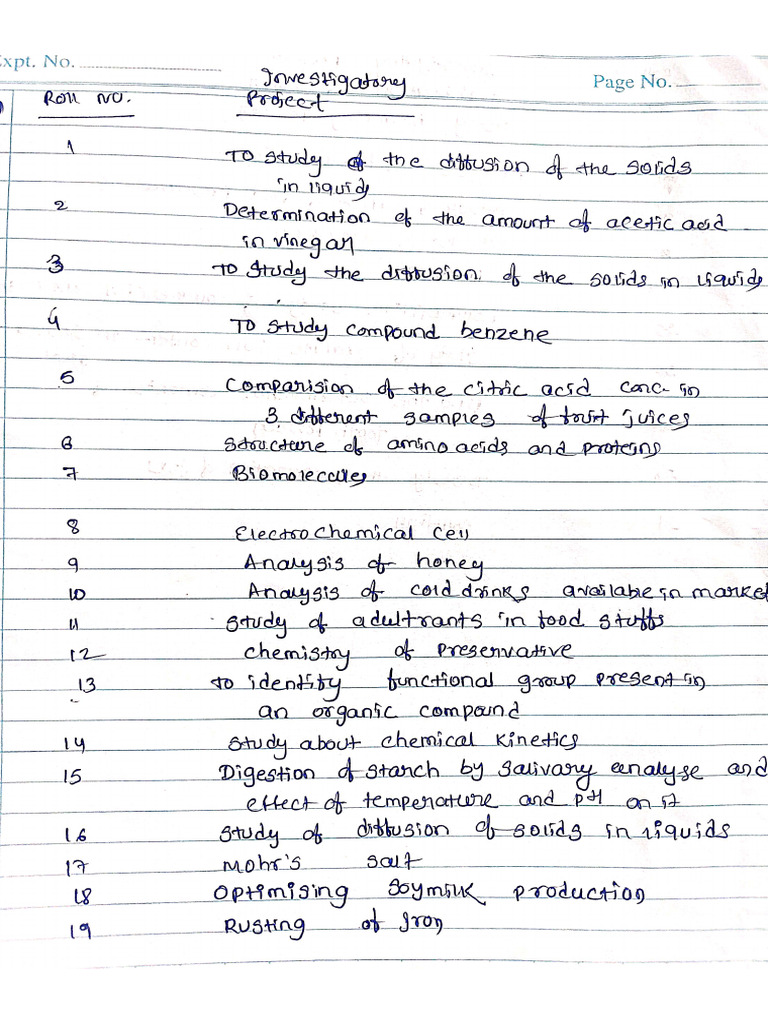 Expt. No.
Page No.
Investigatory
Roll No. Project
1 To study of the diffusion of the solids
in liquids
2 Determination of the amount of acetic acid
in vinegar
3 To study the diffusion of the solids in liquids
4 To study compound benzene
5 Comparision of the citric acid conc. in
3 different samples of fruit juices
6 Structure of amino acids and proteins
7 Biomolecules
8 Electrochemical cell
9 Analysis of honey
10 Analysis of cold drinks available in market
11 Study of adultrants in food stuffs
12 Chemistry of preservative
13 To identify functional group present in
an organic compound
14 Study about chemical kinetics
15 Digestion of starch by salivary and
effect of temperature and pH on it
16 Study of diffusion of solids in liquids
17 Mohr's salt
18 Optimising soymilk production
19 Rusting of Iron